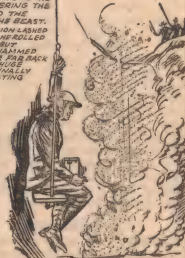 ERING THE
D THE
HE BEAST.
ION LASHED
HE ROLLED
BUT
AMMED
R FAR BACK
HUGE
INALLY
TING